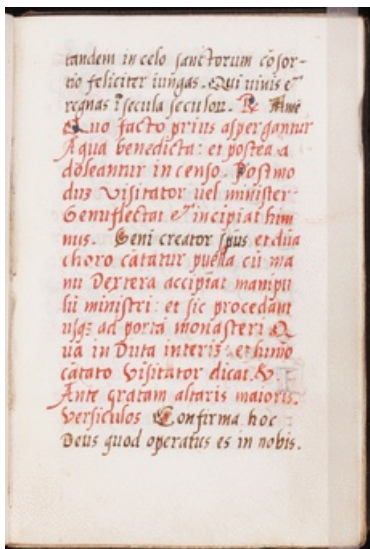 tandem in celo sanctorum cōsor-
tio feliciter iungas. Qui uiuis et
regnas ī secula seculoꝝ. ℟. Amē
Quo facto prius aspergantur
Aqua benedicta: et postea a
doleantur in censo. Postmo
dum Visitator uel minister
Genuflectat et incipiat him
nus. Ueni creator spūs et dūa
choro cātatur puella cū ma
nu Dextera accipiat manipu
lū ministri: et sic procedant
usqꝫ ad portā monasteri Q
ua in Ducta interiꝫ: et himno
cātato Visitator dicat. ℣.
Ante gratam altaris maioris.
Versiculos Confirma hoc
Deus quod operatus es in nobis.